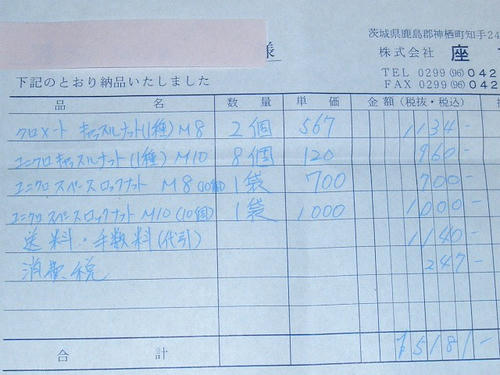 様
茨城県鹿島郡神栖町知手24
株式会社 座
TEL 0299(96)042
FAX 0299(96)042
下記のとおり納品いたしました
品 名 数 量 単 価 金 額(税抜・税込)
クロメート キャッスルナット(1種) M8 2個 567 1134-
ユニクロ キャッスルナット(1種) M10 8個 120 960-
ユニクロ スペースロックナット M8(10個) 1袋 700 700-
ユニクロ スペースロックナット M10(10個) 1袋 1000 1000-
送料・手数料(代引) 1140-
消費税 247-
合 計 ¥5181-